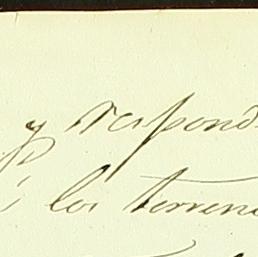 y respond
á los terren